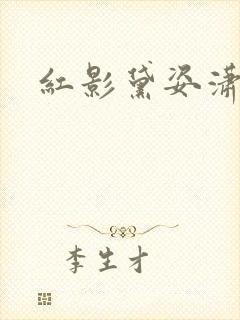 紅影黛姿瀟
李生才